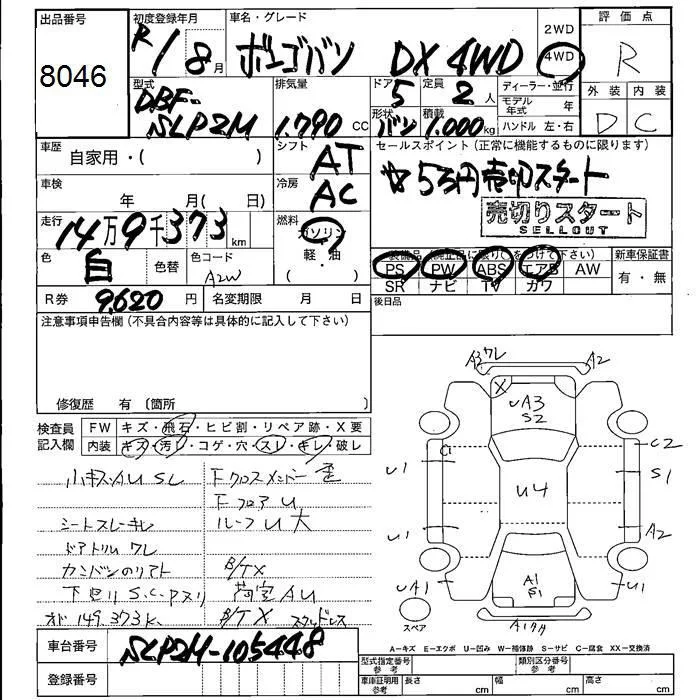 出品番号 8046
初度登録年月 R1 / 8月
車名・グレード ボンゴバン DX 4WD
2WD 4WD
評価点 R
外装 D 内装 C
型式 DBF-SLP2M
排気量 1.790 CC
ドア 5 定員 2人
形状 バン 積載 1.000kg
ディーラー・並行
モデル年式 年
ハンドル 左・右
車歴 自家用・( )
シフト AT
セールスポイント(正常に機能するものに限ります)
車検 年 月( 日)
冷房 AC
☆ 5万円売切スタート
売切りスタート
SELLOUT
走行 14万9千373km
燃料 ガソリン・軽・油
色 白 色替 色コード A2W
装備品(純正品に限り○をつけて下さい)
PS PW ABS エアB AW
SR ナビ TV カワ
新車保証書 有・無
R券 9,620円 名変期限 月 日
後日品
注意事項申告欄(不具合内容等は具体的に記入して下さい)
修復歴 有〔箇所 〕
検査員記入欄 FW キズ・飛石・ヒビ割・リペア跡・X要
内装 キズ・汚レ・コゲ・穴・スレ・キレ・破レ
小キズ・AU SL
Fクロスメンバー歪
Fフロア U
シートスレ・キレ
ルーフ U 大
ドアトリム ワレ
カンバンのリアト B/TX
下回り S.C.Pヌリ
荷室 AU
オド 149.373K
B/TX スタッドレス
A3 ワレ A2
X UA3 S2
C1 C2
U1 S1
U4
U1 A2
UA1 A1 S1 U1
スペア A1
A-キズ E-エクボ U-凹み W-補修跡 S-サビ C-腐食 XX-交換済
車台番号 SLP2M-105448
登録番号
型式指定番号 参考 類別区分番号 参考
車庫証明用 参考 長さ cm 幅 cm 高さ cm